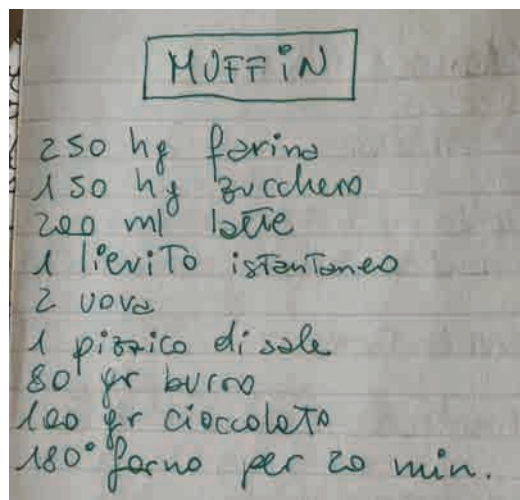 MUFFiN
250 hg farina
150 hg zucchero
200 ml latte
1 lievito istantaneo
2 uova
1 pizzico di sale
80 gr burro
100 gr cioccolato
180° forno per 20 min.